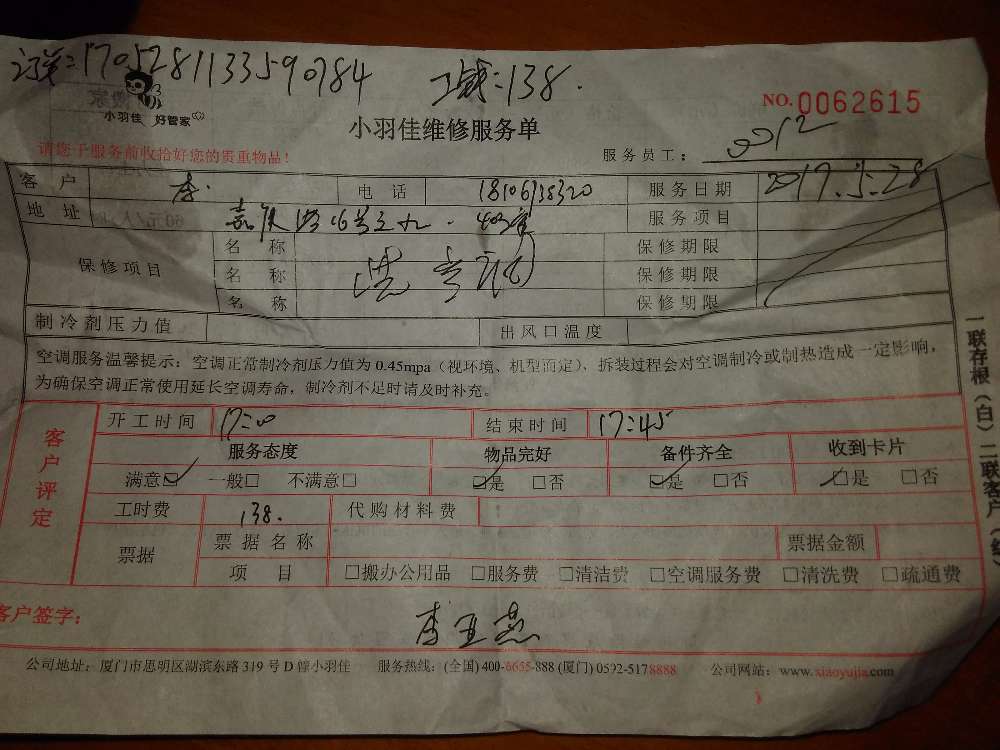 订单:1705281133590784 工钱:138.
小羽佳 好管家
NO.0062615
小羽佳维修服务单
请您于服务前收拾好您的贵重物品!
服务员工: 9012
客户 李. 电话 服务日期 2017.5.28
地址 服务项目
保修项目 名称 保修期限
名称 保修期限
名称 保修期限
制冷剂压力值 出风口温度
空调服务温馨提示:空调正常制冷剂压力值为0.45mpa(视环境、机型而定),拆装过程会对空调制冷或制热造成一定影响,
为确保空调正常使用延长空调寿命,制冷剂不足时请及时补充。
客户评定
开工时间 17:00 结束时间 17:45
服务态度 物品完好 备件齐全 收到卡片
满意☑ 一般□ 不满意□ ☑是 □否 ☑是 □否 ☑是 □否
工时费 138. 代购材料费
票据 票据名称 票据金额
项目 □搬办公用品 □服务费 □清洁费 □空调服务费 □清洗费 □疏通费
客户签字: 李亚燕
公司地址:厦门市思明区湖滨东路319号D幢小羽佳 服务热线:(全国)400-6655-888(厦门)0592-5178888 公司网站:www.xiaoyujia.com
一联存根(白)二联客户(红)